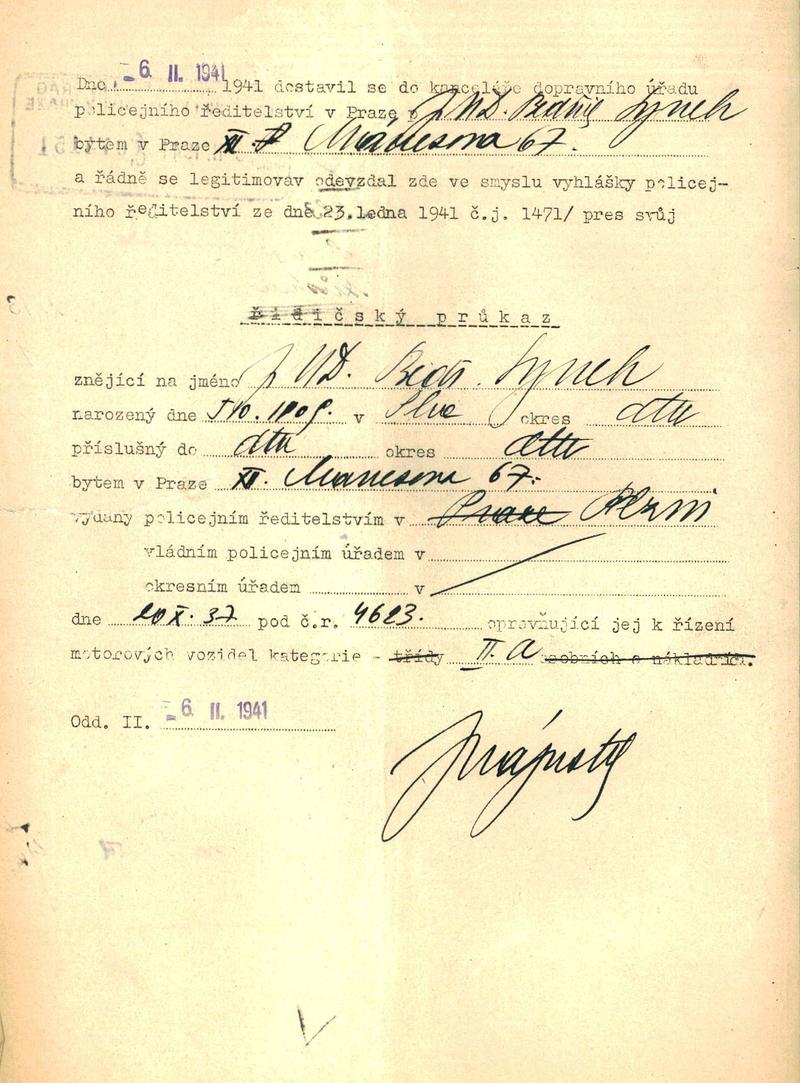 Dne - 6. II. 1941 1941 dostavil se do kanceláře dopravního úřadu
policejního ředitelství v Praze p. JUD. Bedřig Lynch
bytem v Praze XII Manesova 67.
a řádně se legitimovav odevzdal zde ve smyslu vyhlášky policej-
ního ředitelství ze dne 23.ledna 1941 č.j. 1471/ pres svůj
řidičský průkaz
znějící na jméno JUD. Bedř. Lynch
narozený dne 5.10.1909. v okres dtto
příslušný do dtto okres dtto
bytem v Praze XII. Manesova 67.
vydaný policejním ředitelstvím v Praze Plzni
vládním policejním úřadem v
okresním úřadem v
dne 20 X. 37 pod č.r. 4623. opravňující jej k řízení
motorových vozidel kategorie - třídy II. a osobních a nákladních.
Odd. II. - 6. II. 1941